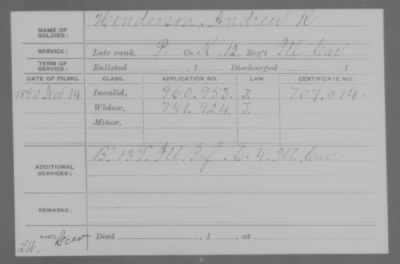 NAME OF SOLDIER: Henderson, Andrew K
SERVICE: Late rank, P. Co. K, 12 Reg't Ill Cav
TERM OF SERVICE: Enlisted , 1 Discharged , 1
DATE OF FILING. CLASS. APPLICATION NO. LAW. CERTIFICATE NO.
1890 Nov 14 Invalid, 960.953 J. 707.014
Widow, 741.924 J.
Minor,
ADDITIONAL SERVICES: B. 139. Ill Inf
REMARKS:
Died , 1 , at